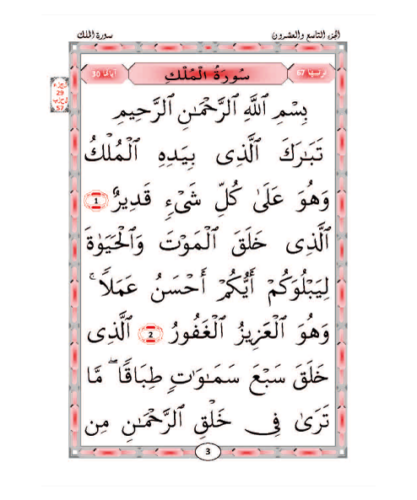 الجزء التاسع والعشرون سورة الملك
ترتيبها 67 سُورَةُ الْمُلْكِ آياتها 30
الجزء
29
الحزب
57
بِسْمِ اللَّهِ الرَّحْمَٰنِ الرَّحِيمِ
تَبَارَكَ الَّذِي بِيَدِهِ الْمُلْكُ
وَهُوَ عَلَىٰ كُلِّ شَيْءٍ قَدِيرٌ 1
الَّذِي خَلَقَ الْمَوْتَ وَالْحَيَوٰةَ
لِيَبْلُوَكُمْ أَيُّكُمْ أَحْسَنُ عَمَلًا ۚ
وَهُوَ الْعَزِيزُ الْغَفُورُ 2 الَّذِي
خَلَقَ سَبْعَ سَمَٰوَٰتٍ طِبَاقًا ۖ مَّا
تَرَىٰ فِي خَلْقِ الرَّحْمَٰنِ مِن
3